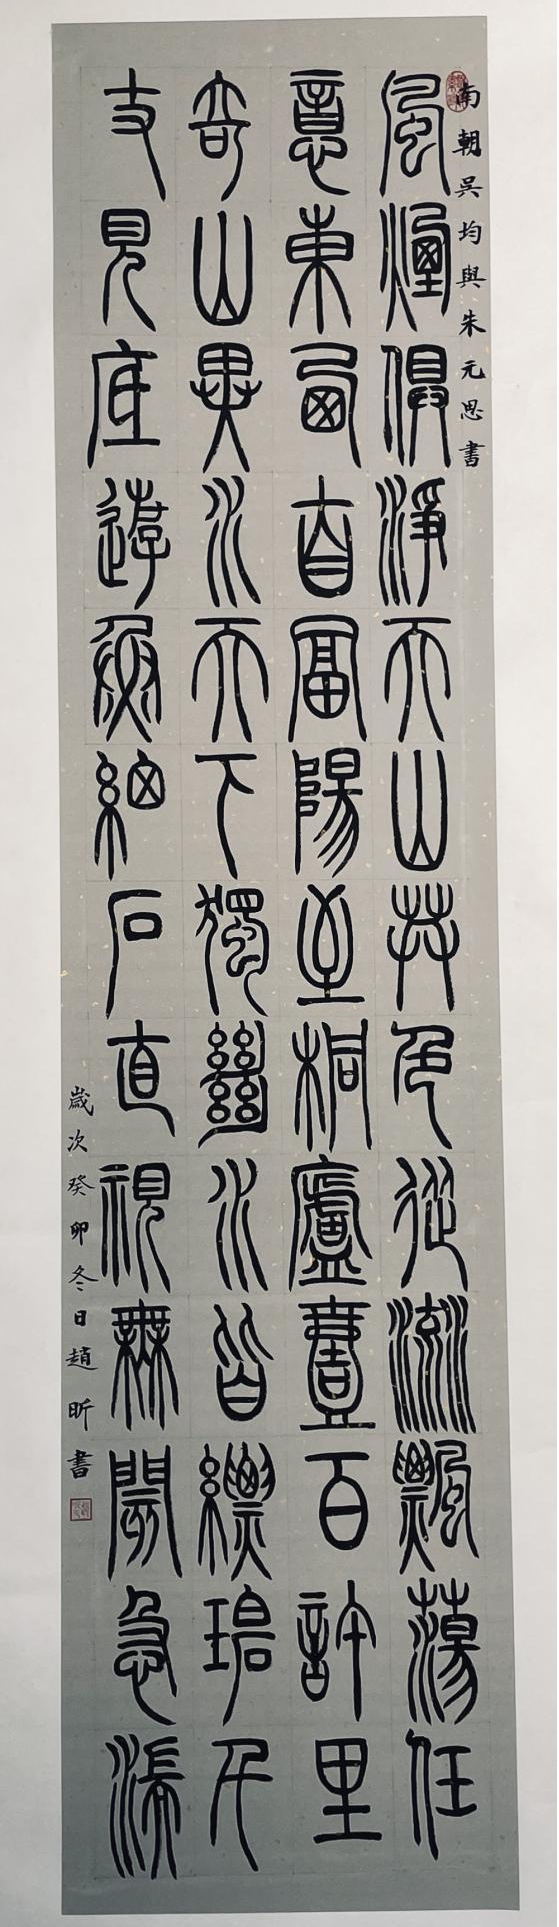 南朝吳均與朱元思書
風煙俱淨天山共色從流飄蕩任
意東西自富陽至桐廬壹百許里
奇山異水天下獨絕水皆縹碧千
丈見底遊魚細石直視無閡急湍
歲次癸卯冬日趙昕書